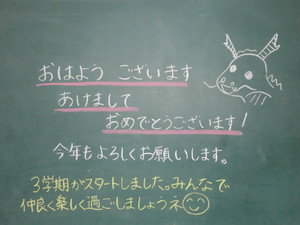 おはよう ございます
あけまして
おめでとうございます!
今年もよろしくお願いします。
3学期がスタートしました。みんなで
仲良く楽しく過ごしましょうネ